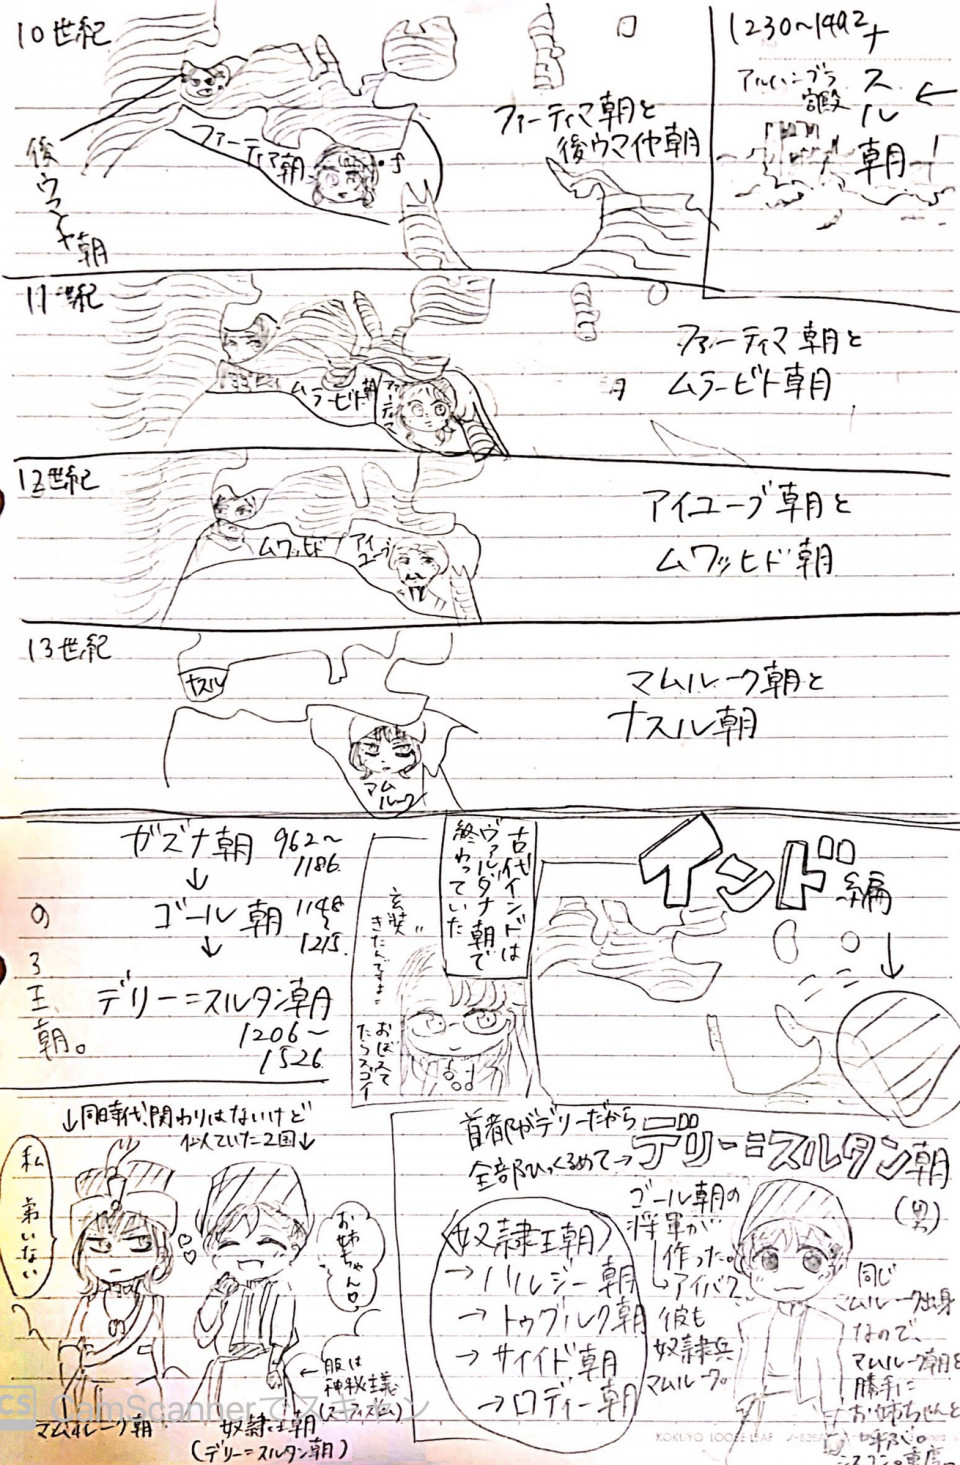 10世紀
後ウマイヤ朝
ファーティマ朝
ファーティマ朝と
後ウマイヤ朝
1230～1492
ナスル朝!
アルハンブラ
宮殿
11世紀
ムラービト朝
ファーティマ
ファーティマ朝と
ムラービト朝
12世紀
ムワッヒド
アイユーブ
アイユーブ朝と
ムワッヒド朝
13世紀
ナスル
マムルーク
マムルーク朝と
ナスル朝
ガズナ朝 962～
1186.
↓
ゴール朝 1148
～
1215.
↓
デリー=スルタン朝
1206～
1526.
の3王朝。
古代インドは
ヴァルダナ朝で
終わっていた
玄奘
きたんですよ=
おぼえて
たらスゴイ
インド編
↓同時代、関わりはないけど
似ていた2国↓
私
弟いない
お姉ちゃん♡
←服は
神秘主義
(スーフィズム)
マムルーク朝
奴隷王朝
(デリー=スルタン朝)
首都がデリーだから
全部ひっくるめて→デリー=スルタン朝
(男)
(奴隷王朝)
→ハルジー朝
→トゥグルク朝
→サイイド朝
→ロディー朝
ゴール朝の
将軍が
作った。
↳アイバク
彼も
奴隷兵
マムルーク。
同じ
ムルーク出身
なので、
マムルーク朝を
勝手に
お姉ちゃんと
呼ぶ。
シスコン。重度。
CS CamScannerでスキャン
KOKUYO LOOSE-LEAF